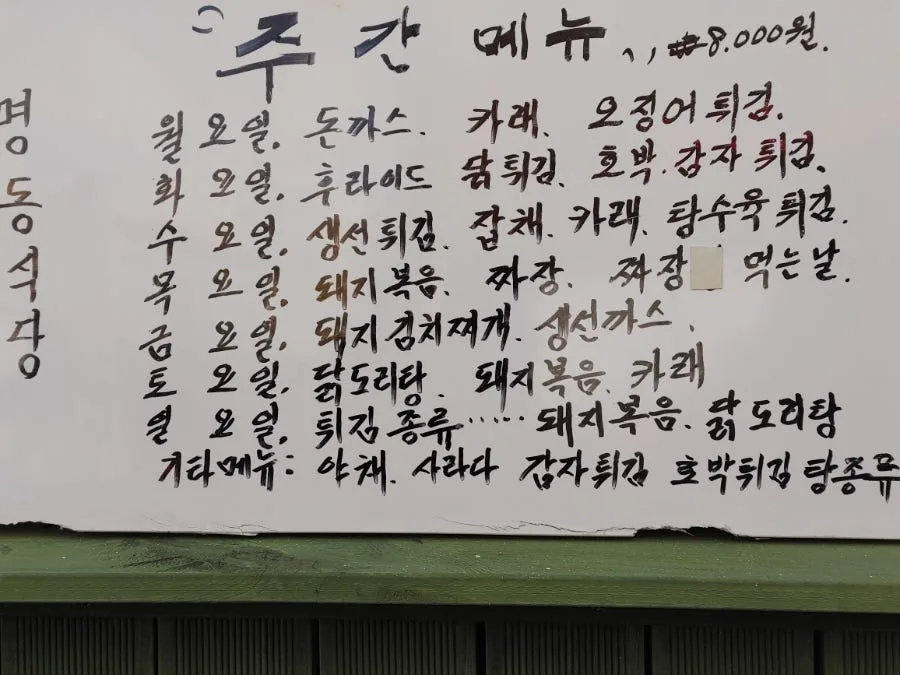 주간 메뉴 ₩8.000원.
명동식당
월요일. 돈까스. 카래. 오징어튀김.
화요일. 후라이드 닭튀김. 호박.감자튀김.
수요일. 생선튀김. 잡채. 카래. 탕수육튀김.
목요일. 돼지볶음. 짜장. 짜장 먹는날.
금요일. 돼지김치찌개. 생선까스.
토요일. 닭도리탕. 돼지볶음. 카래
일요일. 튀김종류······돼지볶음. 닭도리탕
기타메뉴: 야채. 사라다 감자튀김 호박튀김 탕종류